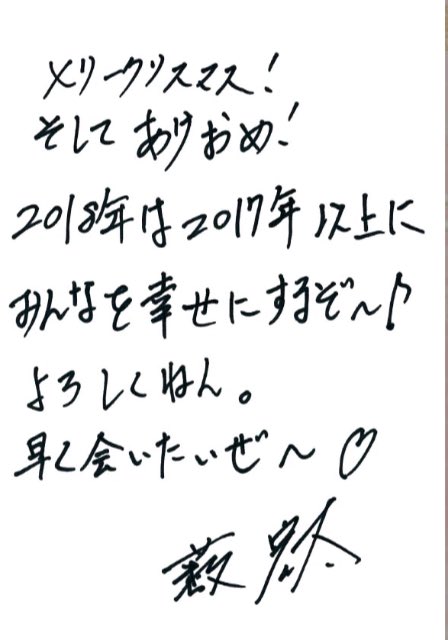 メリークリスマス!
そして あけおめ!
2018年は2017年以上に
みんなを幸せにするぞ〜♪
よろしくねん。
早く会いたいぜ〜♡
薮 宏太